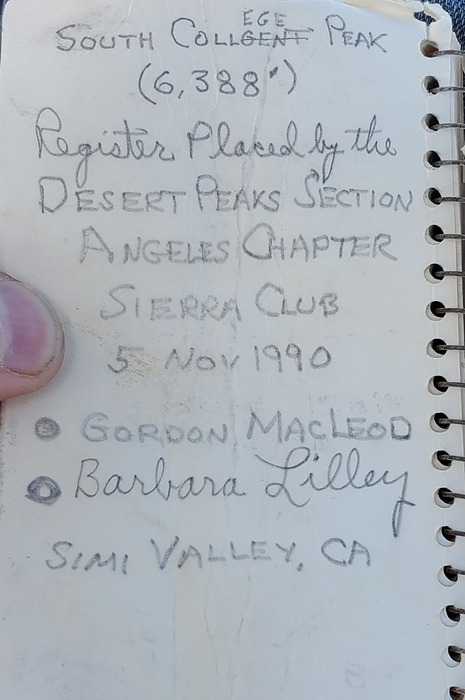 EGE
SOUTH COLLGENT PEAK
(6,388")
Register Placed by the
DESERT PEAKS SECTION
ANGELES CHAPTER
SIERRA CLUB
5 NOV 1990
GORDON MACLEOD
Barbara Lilley
SIMI VALLEY, CA